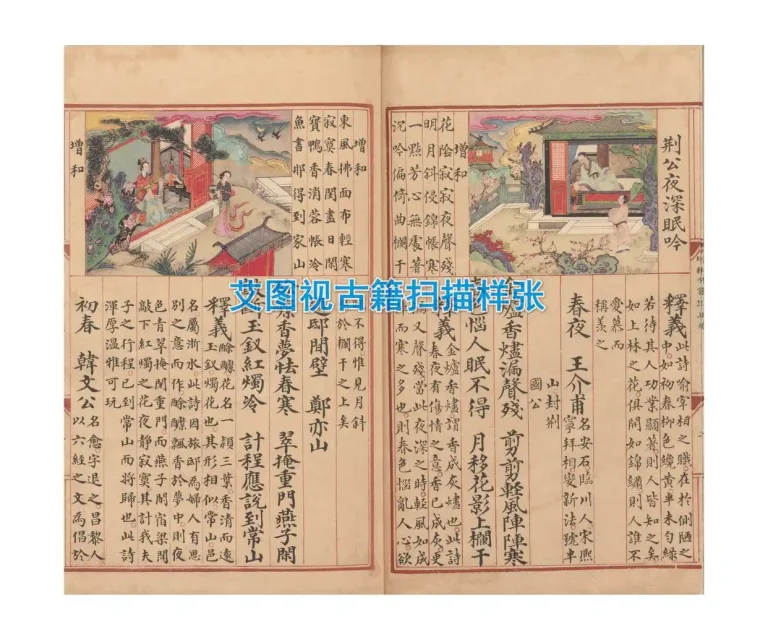 荊公夜深眠吟
增和
花陰寂寂夜聲殘
明月斜侵錦帳寒
一點芳心無處著
沉吟偏倚曲欄干
釋義此詩喻宰相之職在於側陋之
中如初春柳色纔黃半未勻綠
若待其人功業顯著則人皆知之矣
如上林之花俱開如錦繡則人誰不
愛慕而
稱羨之
春夜 王介甫
名安石臨川人宋熈
寧拜相變新法號半
山封荊
國公
爐香燼漏聲殘 剪剪輕風陣陣寒
惱人眠不得 月移花影上欄干
義金爐香燼謂香成灰燼也此詩
春夜有傷情之意香已成灰更
又聲殘當此夜深之時輕風如成
而寒之多也則春色惱亂人心欲
增和
東風拂面布輕寒
寂寞春閨盡日閒
寶鴨香消蓉帳冷
魚書那得到家山
不得惟見月斜
於欄干之上矣
邸間壁 鄭亦山
香夢怯春寒 翠掩重門燕子閒
玉釵紅燭冷 計程應說到常山
釋義酴醾花名一穎三葉香清而遠
玉釵燭花也其形相似常山邑
名屬浙水此詩因旅邸為婦人有思
別之意而作酴醾飄香於夢中則夜
色青翠掩閉重門而燕子閒宿梁間
敲下紅燭之花夜靜寂寞其計我夫
子之行程已到常山而將歸也此詩
渾厚温雅可玩
初春 韓文公
名愈字退之昌黎人
以六經之文為倡於
艾图视古籍扫描样张